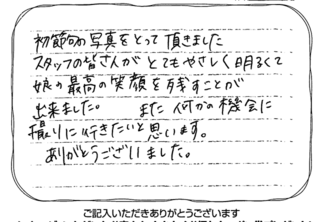 初節句の写真をとって頂きました
スタッフの皆さんが とてもやさしく明るくて
娘の最高の笑顔を残すことが
出来ました。 また何かの機会に
撮りに行きたいと思います。
ありがとうございました。
ご記入いただきありがとうございます